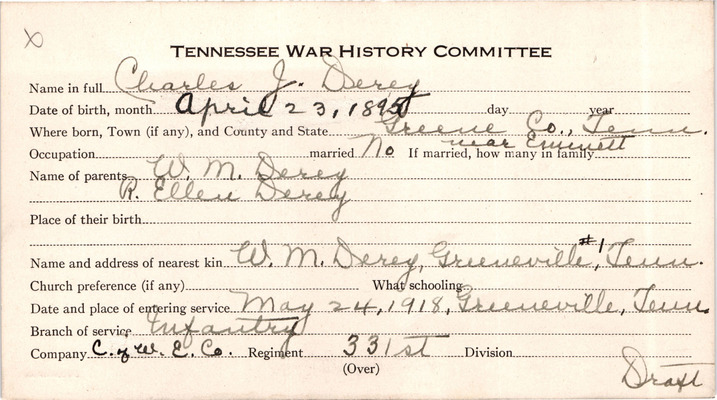 X
TENNESSEE WAR HISTORY COMMITTEE
Name in full Charles J. Derey
Date of birth, month April 23, 1895 day year
Where born, Town (if any), and County and State Greene Co., Tenn.
near Emmett
Occupation married No If married, how many in family
Name of parents W. M. Derey
R. Ellen Derey
Place of their birth
Name and address of nearest kin W. M. Derey, Greeneville, #1 Tenn.
Church preference (if any) What schooling
Date and place of entering service May 24, 1918, Greeneville, Tenn.
Branch of service Infantry
Company C. of W. E. Co. Regiment 331st Division
(Over)
Draft